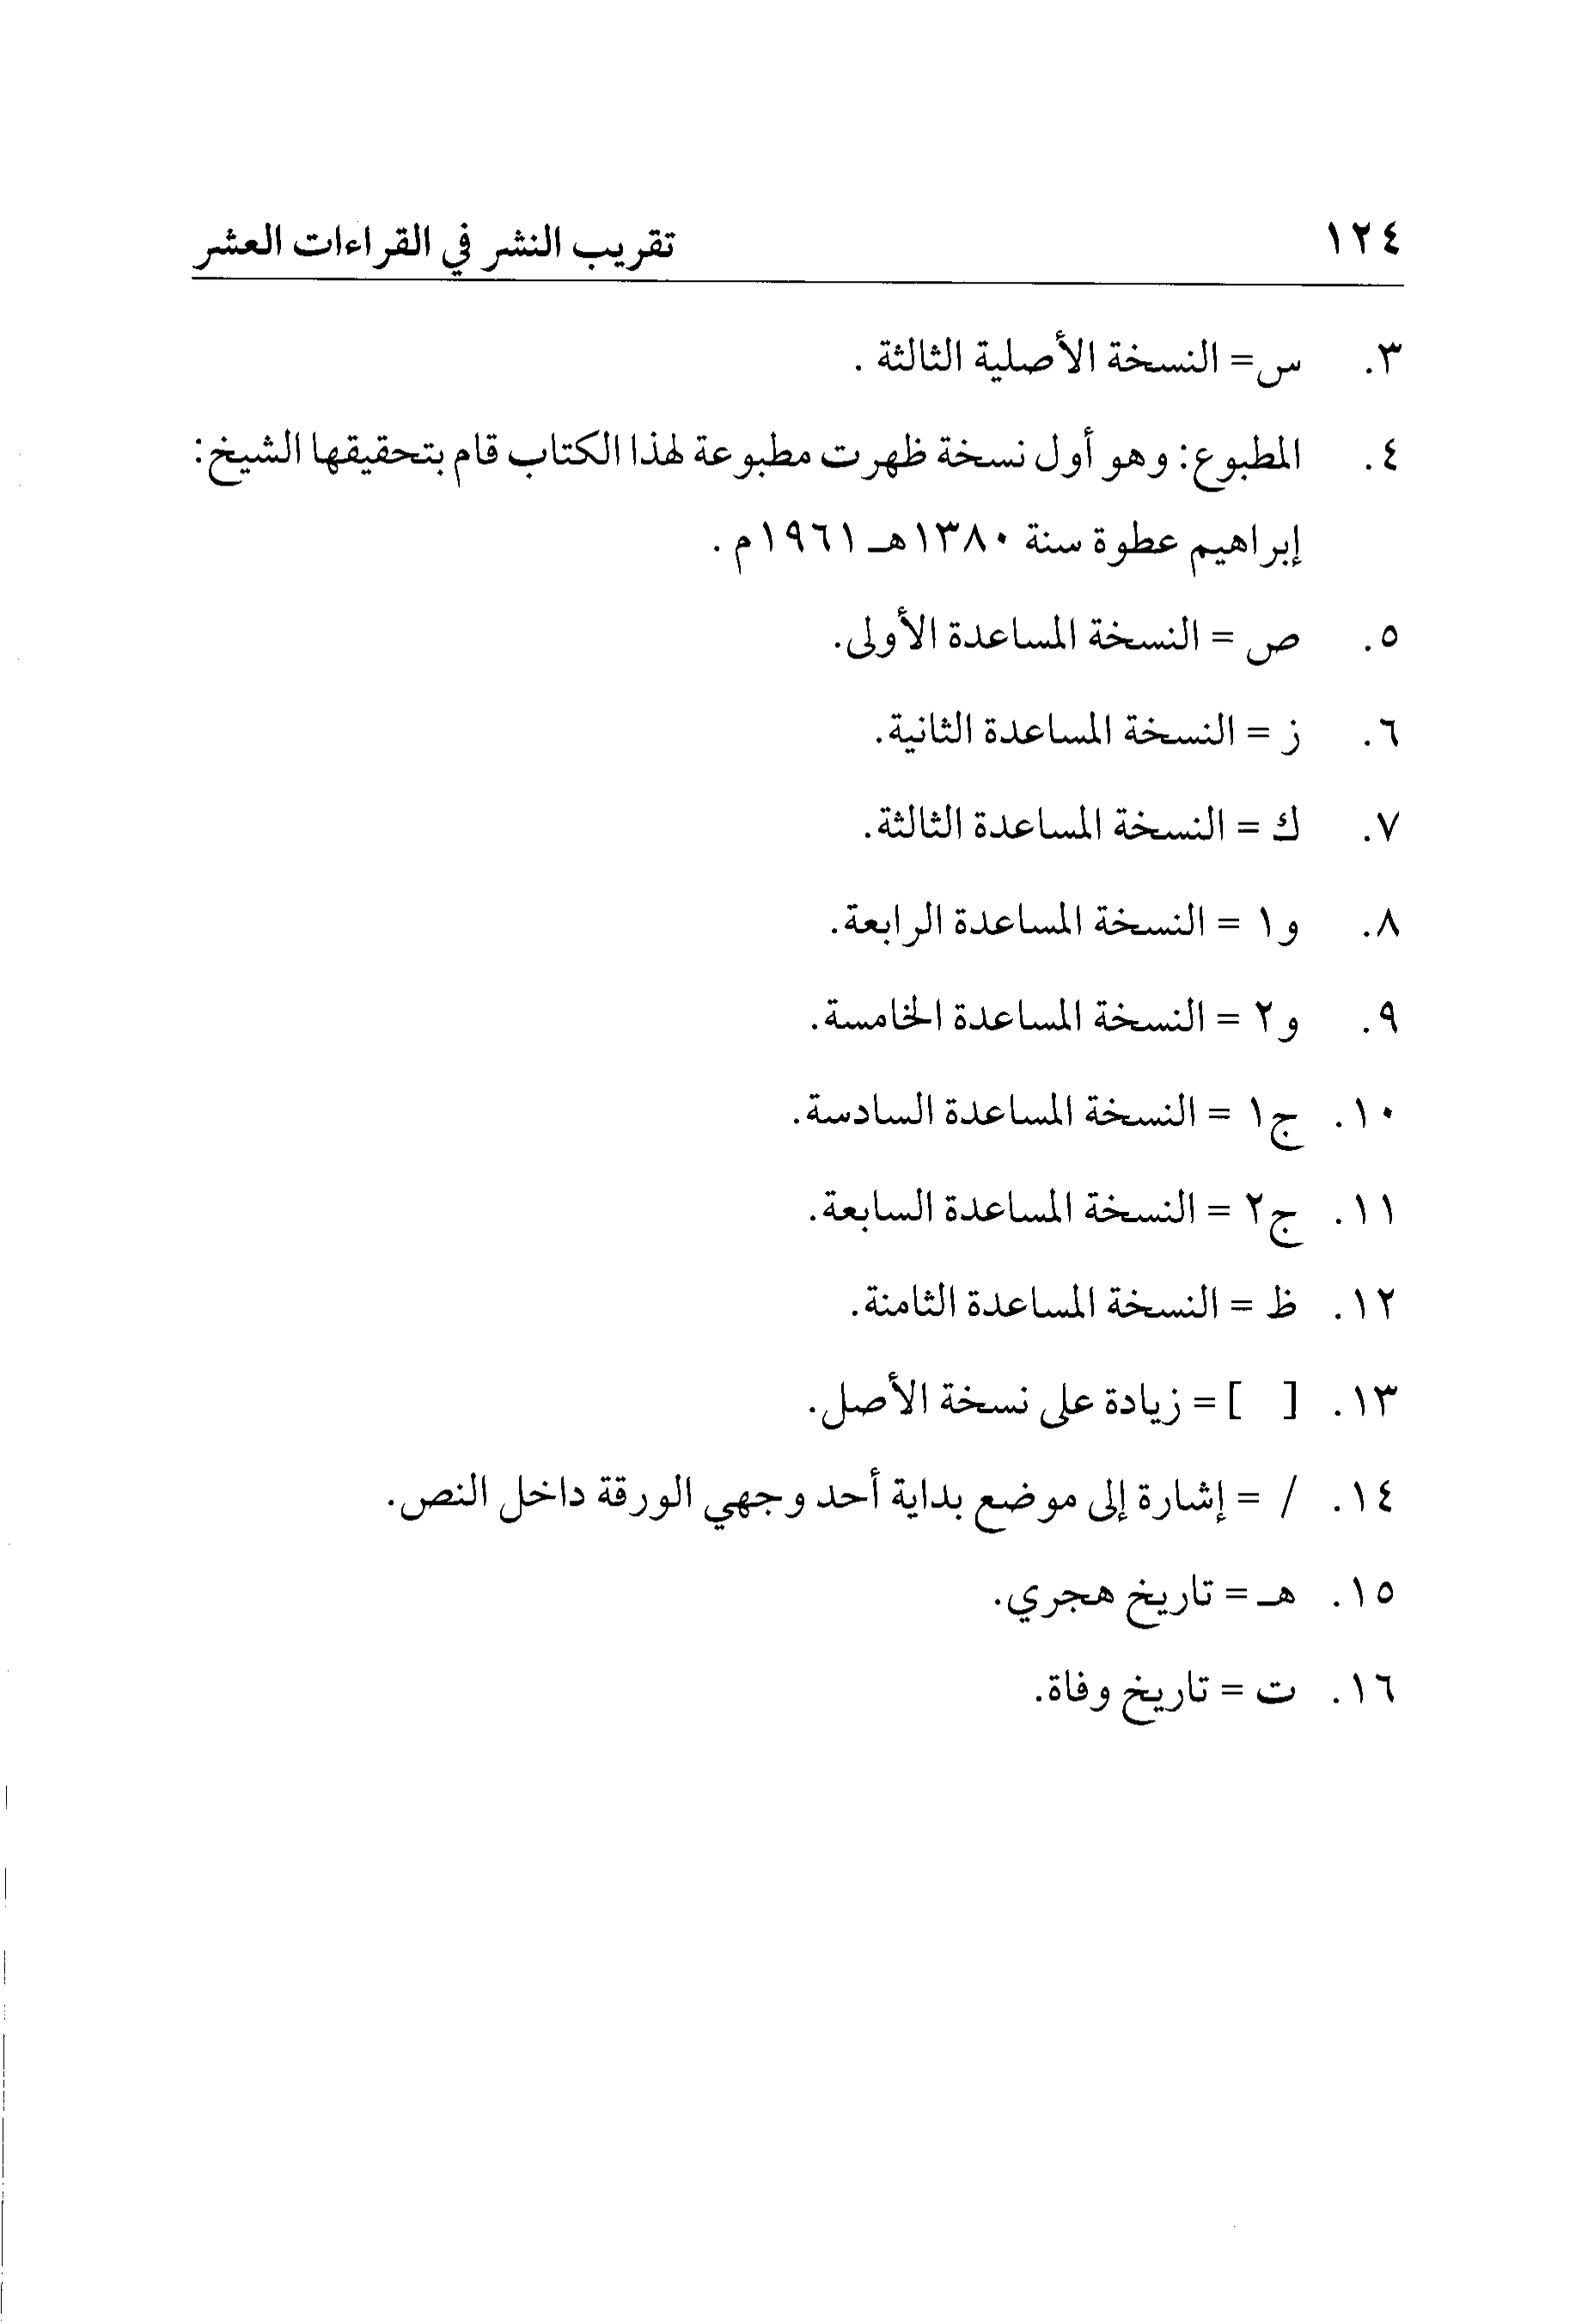 ١٢٤ تقريب النشر في القراءات العشر
٣. س= النسخة الأصلية الثالثة .
٤. المطبوع: وهو أول نسخة ظهرت مطبوعة لهذا الكتاب قام بتحقيقها الشيخ:
إبراهيم عطوة سنة ١٣٨٠هـ ١٩٦١م .
٥. ص = النسخة المساعدة الأولى.
٦. ز = النسخة المساعدة الثانية.
٧. ك = النسخة المساعدة الثالثة.
٨. و١ = النسخة المساعدة الرابعة.
٩. و٢ = النسخة المساعدة الخامسة.
١٠. ج١ = النسخة المساعدة السادسة.
١١. ج٢ = النسخة المساعدة السابعة.
١٢. ظ = النسخة المساعدة الثامنة.
١٣. [ ] = زيادة على نسخة الأصل.
١٤. / = إشارة إلى موضع بداية أحد وجهي الورقة داخل النص.
١٥. هـ = تاريخ هجري.
١٦. ت = تاريخ وفاة.